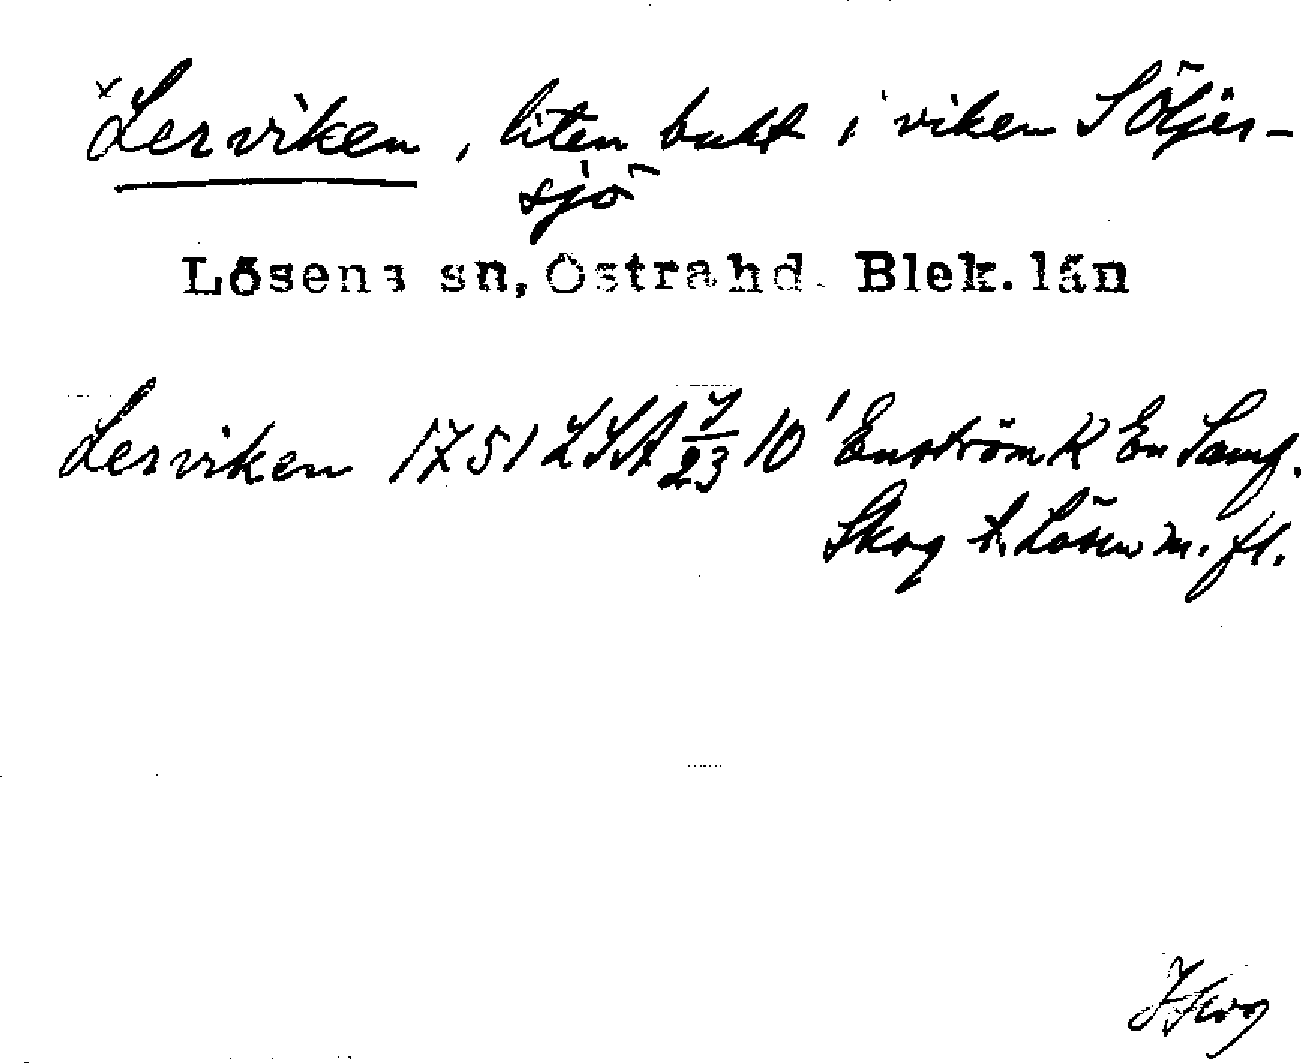 x Lerviken, liten bukt i viken Söljer-
sjö
Lösens sn, Östra hd. Blek. län
Lerviken 1751 LSA I/23 10' Enström K En Samf.
Skog t. Lösen m. fl.